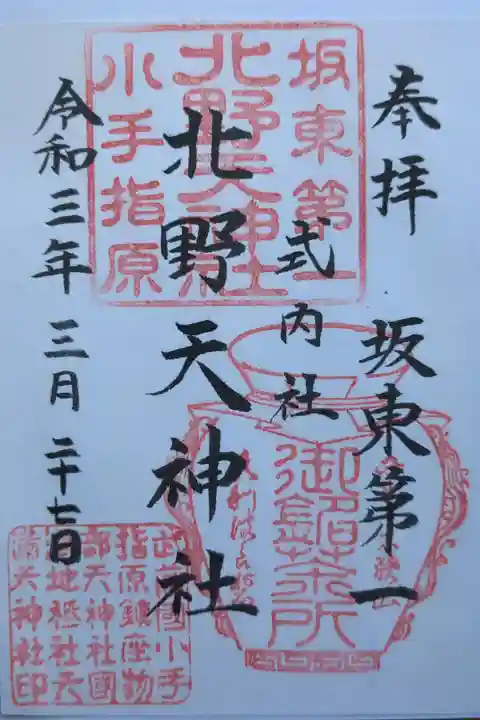 奉拝
坂東第一
式内社
北野天神社
令和三年三月二十七日
坂東第一
北野天神社
小手指原
御銘茶所
武蔵國小手
指原鎮座物
部天神社國
地祇社天
満天神社印